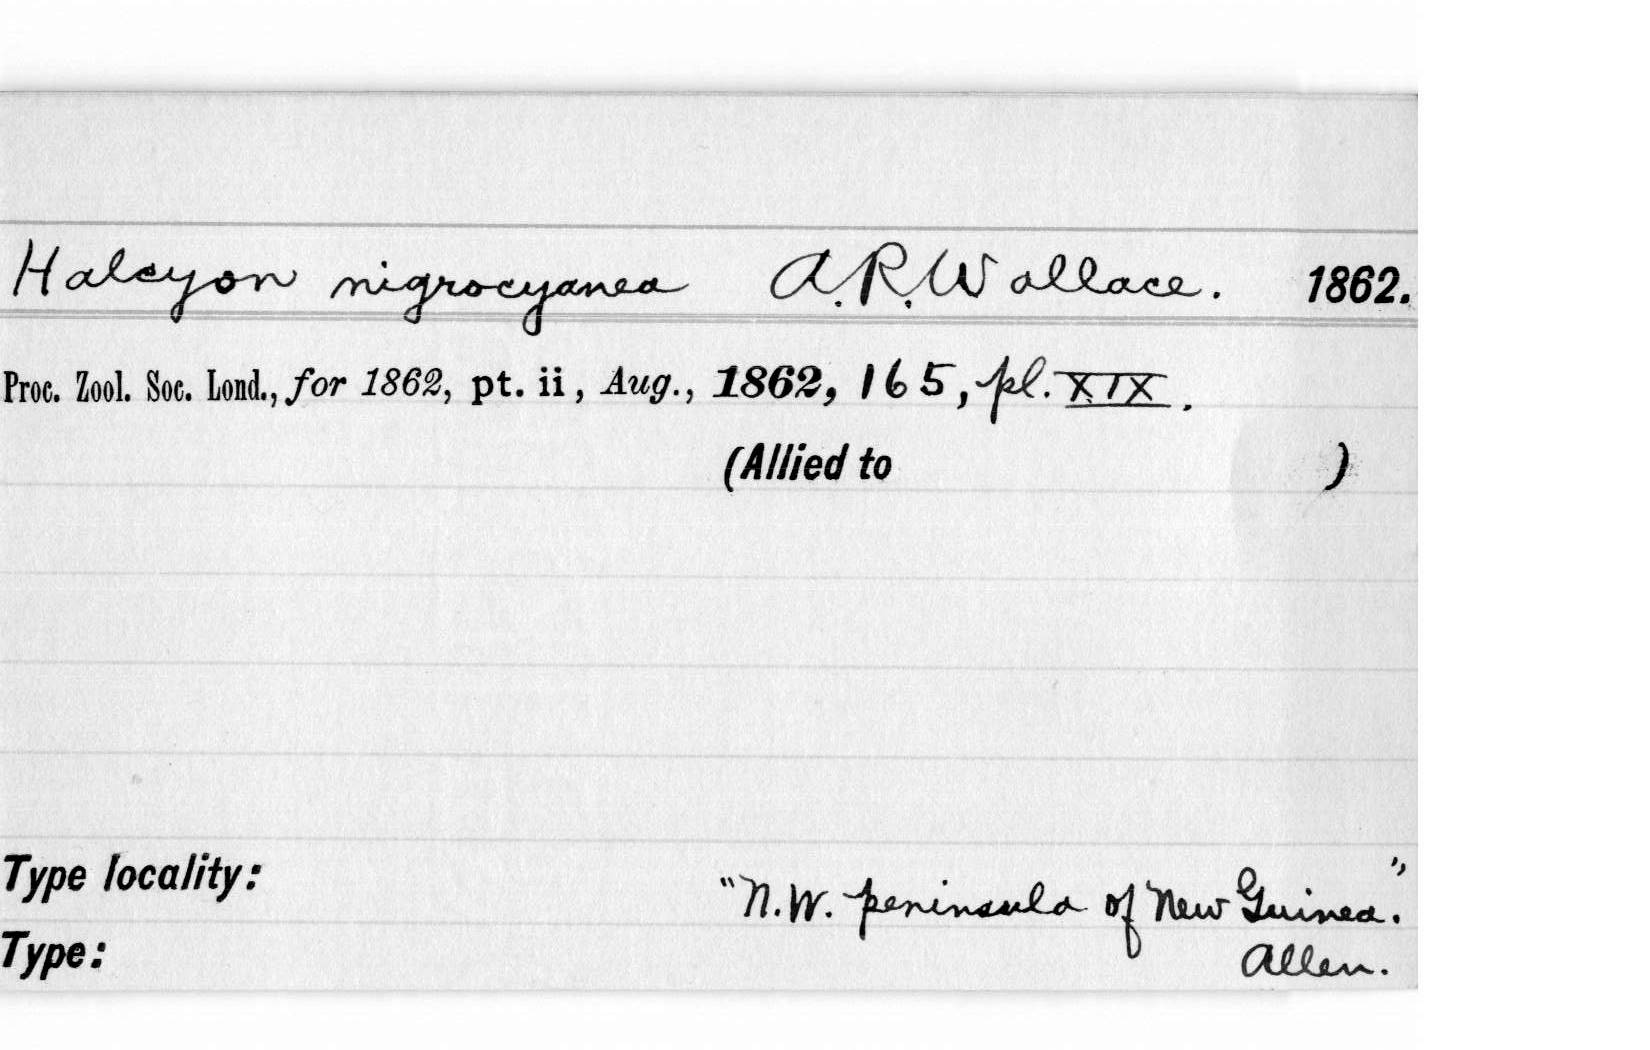 Halcyon nigrocyanea A.R.Wallace. 1862.
Proc. Zool. Soc. Lond., for 1862, pt. ii, Aug., 1862, 165, pl. XIX.
(Allied to )
Type locality: "N.W. peninsula of New Guinea."
Type: Allen.